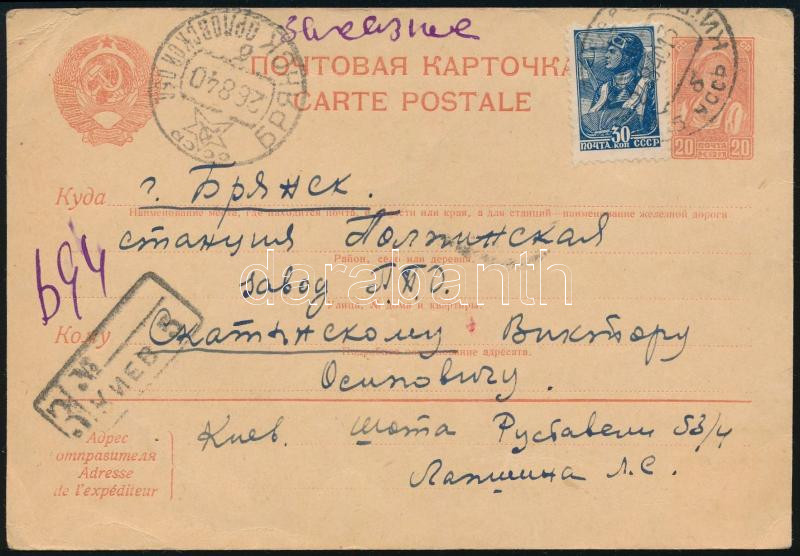 Заказное
ПОЧТОВАЯ КАРТОЧКА
CARTE POSTALE
БРЯНСК ОРЛОВСКОЙ ОБЛ
26 8 40
30
ПОЧТА КОП СССР
20 ПОЧТА 20
КОП
Куда г. Брянск.
Наименование места, где находится почта, области или края, а для станций—наименование железной дороги
станция Полпинская
Район, село или деревня.
завод П.П.О.
Улица, № дома и квартиры.
694
Кому Скатынскому Виктору
Подробное наименование адресата.
Осиповичу.
КИЕВ 3
Адрес
отправителя
Adresse
de l'expéditeur
Киев. Шота Руставели 53/4
Лапшина Л.С.
darabanth